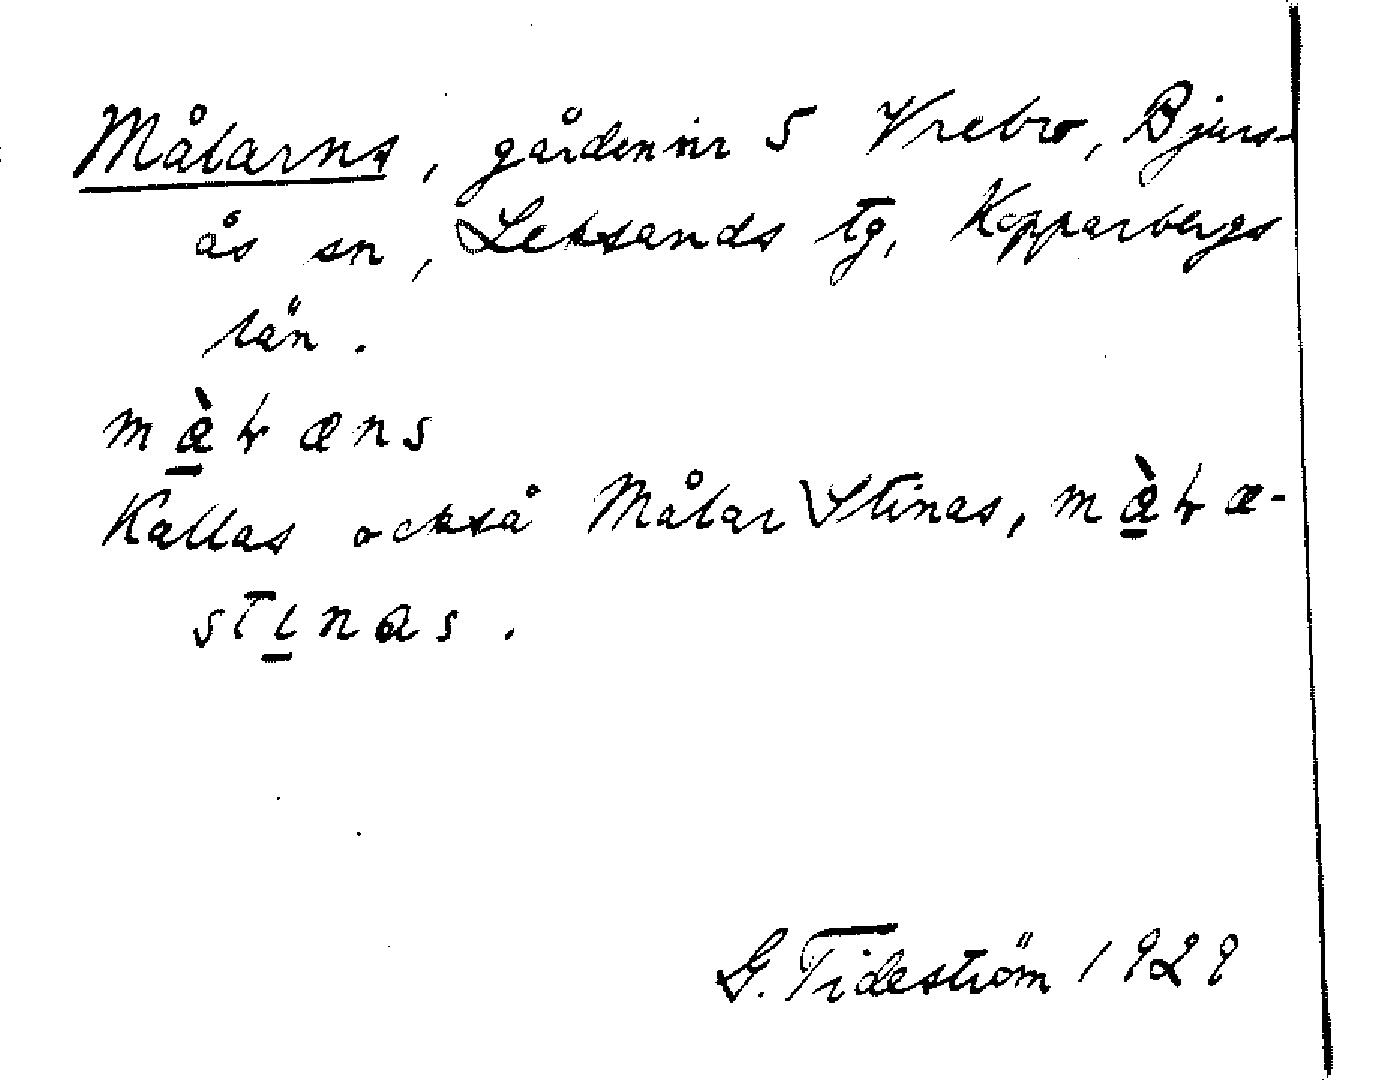 Målarns, gården nr 5 Vrebro, Bjurs-
ås sn, Leksands tg, Kopparbergs
län.
màɽæns
Kallas också Målar Stinas, màɽæ-
stinas.
G. Tideström 1929